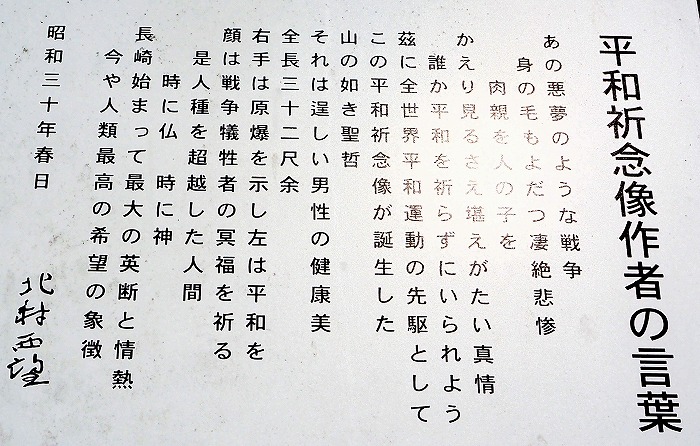 平和祈念像作者の言葉
あの悪夢のような戦争
身の毛もよだつ凄絶悲惨
肉親を人の子を
かえり見るさえ堪えがたい真情
誰か平和を祈らずにいられよう
茲に全世界平和運動の先駆として
この平和祈念像が誕生した
山の如き聖哲
それは逞しい男性の健康美
全長三十二尺余
右手は原爆を示し左は平和を
顔は戦争犠牲者の冥福を祈る
是人種を超越した人間
時に仏 時に神
長崎始まって最大の英断と情熱
今や人類最高の希望の象徴
昭和三十年春日
北村西望